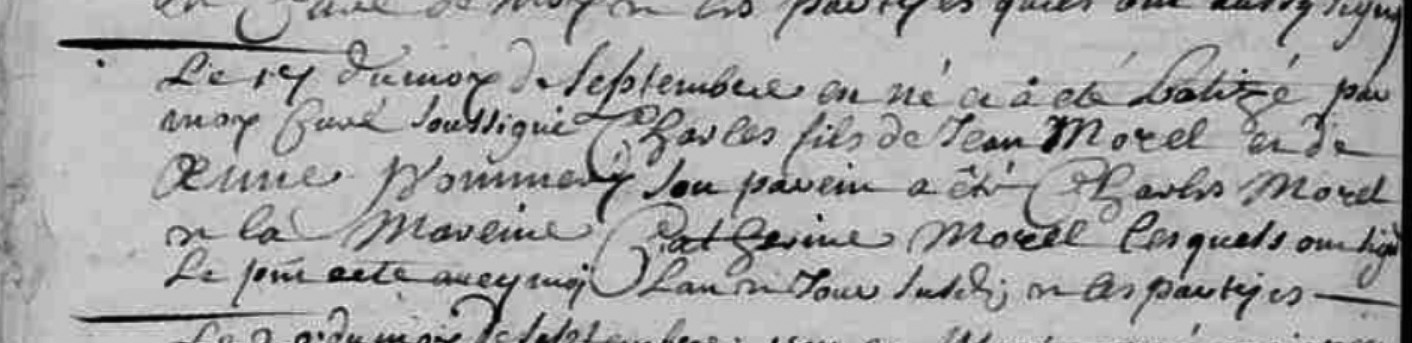 Curé de moy et les partÿes quiels ont aussy signez
Le 17 du moÿ de septembre en né et a été batizé par
moy Curé soussigné Charles fils de Jean Morel et de
Anne Wommery son parein a été Charles Morel
et la Mareine Catherine Morel lesquels ont signé
Le pnt acte avecq moÿ L'an et Jour susdis et les partijes
du moy de septembre